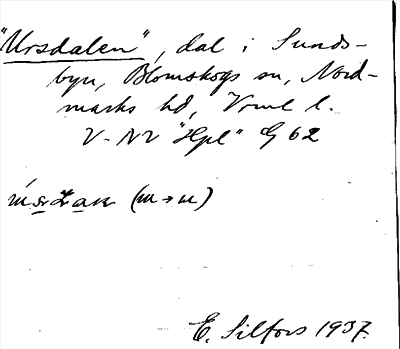 "Ursdalen", dal i Sunds-
byn, Blomskogs sn, Nord-
marks hd, Vrml l.
V-NV "Hpl" G 62
(m→u)
E. Silfors 1937.